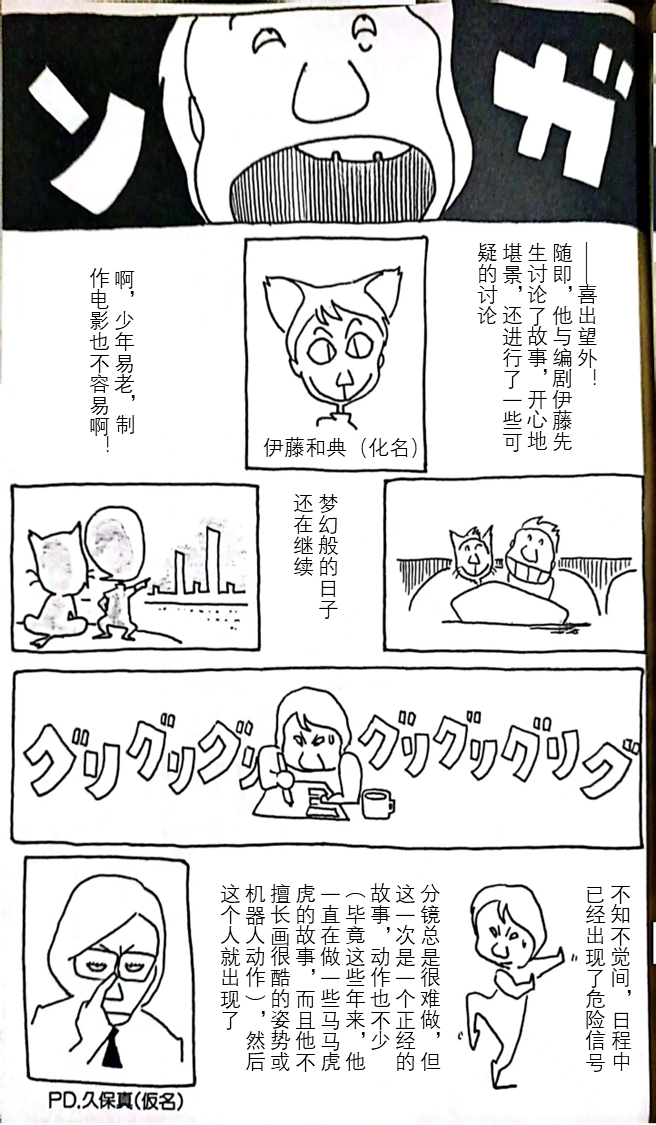 ガン
——喜出望外！
随即，他与编剧伊藤先
生讨论了故事，开心地
堪景，还进行了一些可
疑的讨论
伊藤和典（化名）
啊，少年易老，制
作电影也不容易啊！
梦幻般的日子
还在继续
グリグリグリ グリグリグリグ
不知不觉间，日程中
已经出现了危险信号
分镜总是很难做，但
这一次是一个正经的
故事，动作也不少
（毕竟这些年来，他
一直在做一些马马虎
虎的故事，而且他不
擅长画很酷的姿势或
机器人动作），然后
这个人就出现了
PD.久保真(仮名)